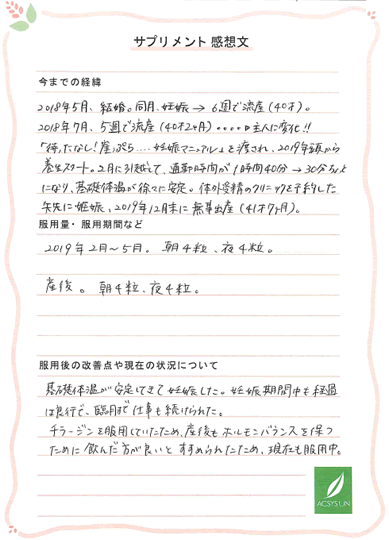 サプリメント 感想文
今までの経緯
2018年5月、結婚。同月、妊娠→6週で流産(40才)。
2018年7月、5週で流産(40才2ヶ月)・・・・▷主人に変化!!
妊娠マニュアル」を渡され、2019年頭から
養生スタート。2月に引越して、通勤時間が1時間40分→30分ちょい
になり、基礎体温が徐々に安定。体外受精のクリニックを予約した
矢先に妊娠、2019年12月末に無事出産(41才7ヶ月)。
服用量・服用期間など
2019年2月~5月。朝4粒、夜4粒。
産後。朝4粒、夜4粒。
服用後の改善点や現在の状況について
基礎体温が安定してきて妊娠した。妊娠期間中も経過
は良行で、臨月まで仕事も続けられた。
チラージンを服用していたため、産後もホルモンバランスを保つ
ために飲んだ方が良いとすすめられたため、現在も服用中。
ACSYSUN